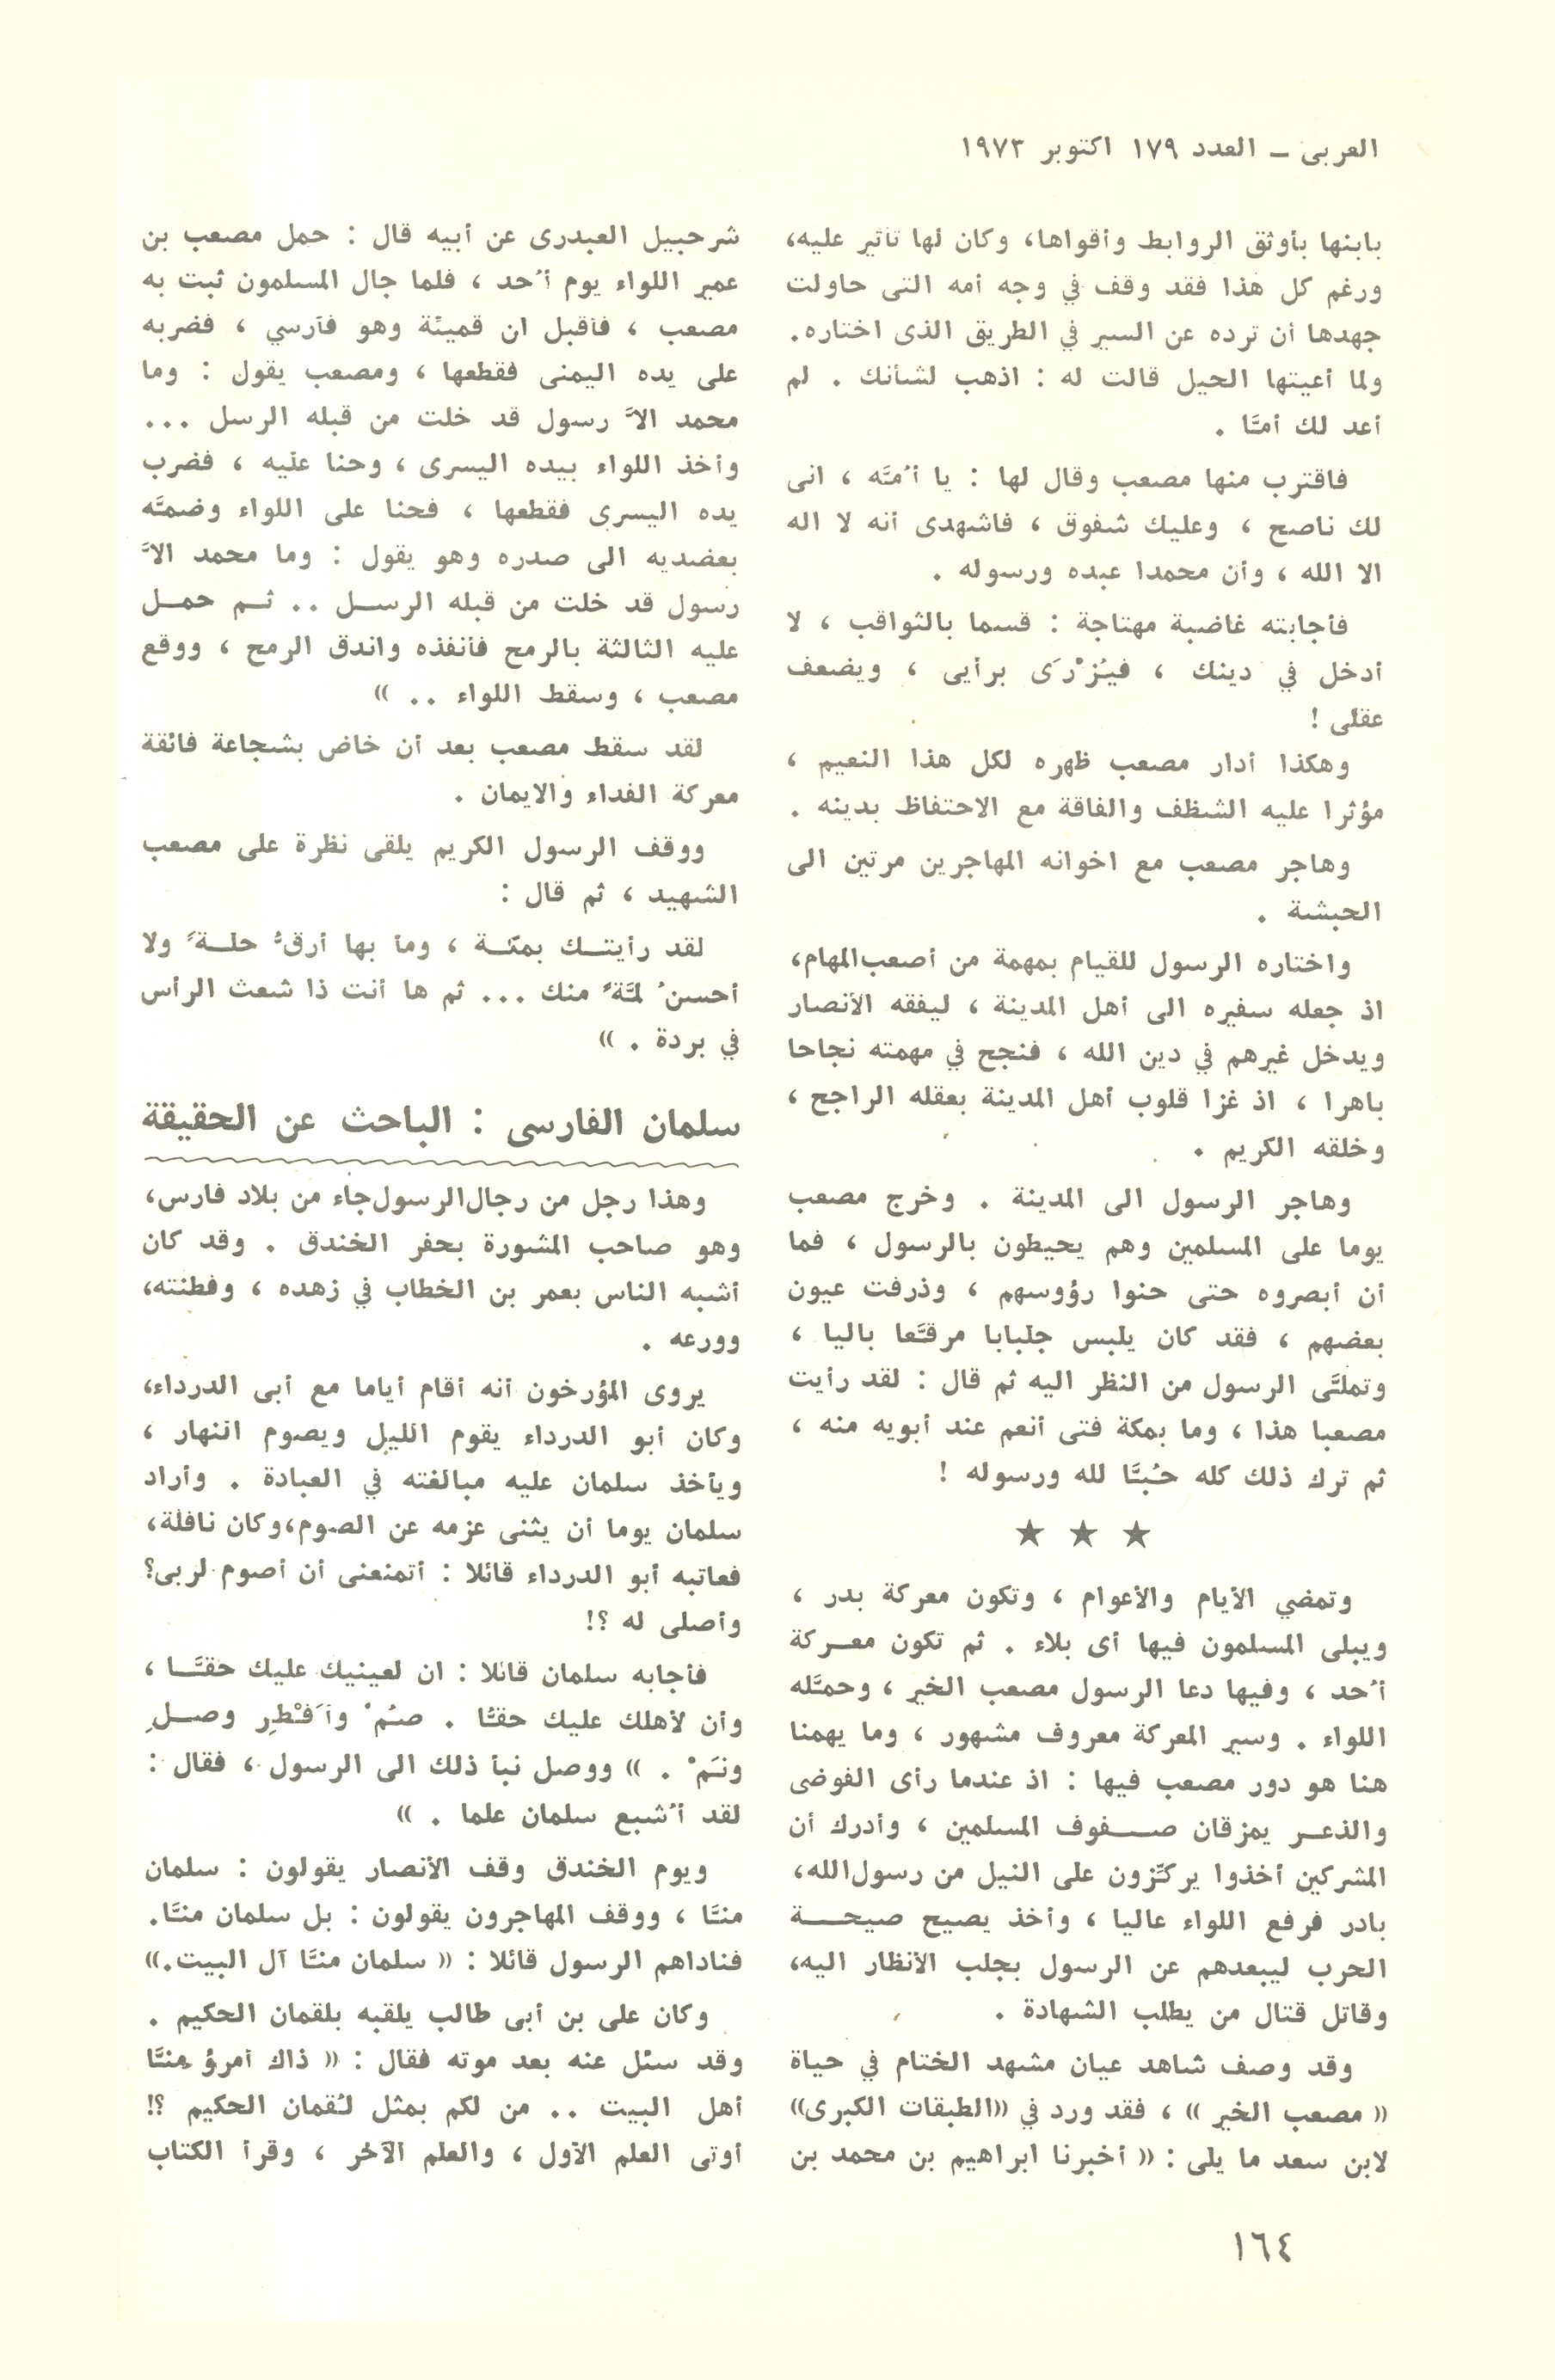 العربى – العدد ١٧٩ اكتوبر ١٩٧٣
بابنها بأوثق الروابط وأقواها، وكان لها تأثير عليه،
ورغم كل هذا فقد وقف في وجه أمه التى حاولت
جهدها أن ترده عن السير في الطريق الذى اختاره.
ولما أعيتها الحيل قالت له : اذهب لشأنك . لم
أعد لك أمَّا .
فاقترب منها مصعب وقال لها : يا أُمَّه ، انى
لك ناصح ، وعليك شفوق ، فاشهدى أنه لا اله
الا الله ، وأن محمدا عبده ورسوله .
فأجابته غاضبة مهتاجة : قسما بالثواقب ، لا
أدخل في دينك ، فيُزْرَى برأيى ، ويضعف
عقلى !
وهكذا أدار مصعب ظهره لكل هذا النعيم ،
مؤثرا عليه الشظف والفاقة مع الاحتفاظ بدينه .
وهاجر مصعب مع اخوانه المهاجرين مرتين الى
الحبشة .
واختاره الرسول للقيام بمهمة من أصعب المهام،
اذ جعله سفيره الى أهل المدينة ، ليفقه الأنصار
ويدخل غيرهم في دين الله ، فنجح في مهمته نجاحا
باهرا ، اذ غزا قلوب أهل المدينة بعقله الراجح ،
وخلقه الكريم .
وهاجر الرسول الى المدينة . وخرج مصعب
يوما على المسلمين وهم يحيطون بالرسول ، فما
أن أبصروه حتى حنوا رؤوسهم ، وذرفت عيون
بعضهم ، فقد كان يلبس جلبابا مرقَّعا باليا ،
وتملَّى الرسول من النظر اليه ثم قال : لقد رأيت
مصعبا هذا ، وما بمكة فتى أنعم عند أبويه منه ،
ثم ترك ذلك كله حُبَّا لله ورسوله !
★ ★ ★
وتمضي الأيام والأعوام ، وتكون معركة بدر ،
ويبلى المسلمون فيها أى بلاء . ثم تكون معركة
أُحد ، وفيها دعا الرسول مصعب الخير ، وحمَّله
اللواء . وسير المعركة معروف مشهور ، وما يهمنا
هنا هو دور مصعب فيها : اذ عندما رأى الفوضى
والذعر يمزقان صفوف المسلمين ، وأدرك أن
المشركين أخذوا يركِّزون على النيل من رسول الله،
بادر فرفع اللواء عاليا ، وأخذ يصيح صيحة
الحرب ليبعدهم عن الرسول بجلب الأنظار اليه،
وقاتل قتال من يطلب الشهادة .
وقد وصف شاهد عيان مشهد الختام في حياة
« مصعب الخير » ، فقد ورد في «الطبقات الكبرى»
لابن سعد ما يلى : « أخبرنا ابراهيم بن محمد بن
شرحبيل العبدرى عن أبيه قال : حمل مصعب بن
عمير اللواء يوم أُحد ، فلما جال المسلمون ثبت به
مصعب ، فأقبل ان قميئة وهو فارسي ، فضربه
على يده اليمنى فقطعها ، ومصعب يقول : وما
محمد الاَّ رسول قد خلت من قبله الرسل ...
وأخذ اللواء بيده اليسرى ، وحنا عليه ، فضرب
يده اليسرى فقطعها ، فحنا على اللواء وضمَّه
بعضديه الى صدره وهو يقول : وما محمد الاَّ
رسول قد خلت من قبله الرسل .. ثم حمل
عليه الثالثة بالرمح فأنفذه واندق الرمح ، ووقع
مصعب ، وسقط اللواء .. »
لقد سقط مصعب بعد أن خاض بشجاعة فائقة
معركة الفداء والايمان .
ووقف الرسول الكريم يلقى نظرة على مصعب
الشهيد ، ثم قال :
لقد رأيتك بمكة ، وما بها أرقُّ حلةً ولا
أحسنُ لمَّةً منك ... ثم ها أنت ذا شعث الرأس
في بردة . »
سلمان الفارسى : الباحث عن الحقيقة
وهذا رجل من رجال الرسول جاء من بلاد فارس،
وهو صاحب المشورة بحفر الخندق . وقد كان
أشبه الناس بعمر بن الخطاب في زهده ، وفطنته،
وورعه .
يروى المؤرخون أنه أقام أياما مع أبى الدرداء،
وكان أبو الدرداء يقوم الليل ويصوم النهار ،
ويأخذ سلمان عليه مبالغته في العبادة . وأراد
سلمان يوما أن يثنى عزمه عن الصوم،وكان نافلة،
فعاتبه أبو الدرداء قائلا : أتمنعنى أن أصوم لربى؟
وأصلى له ؟!
فأجابه سلمان قائلا : ان لعينيك عليك حقَّا ،
وأن لأهلك عليك حقَّا . صُمْ وأَفْطِر وصلِ
ونَمْ . » ووصل نبأ ذلك الى الرسول ، فقال :
لقد أُشبع سلمان علما . »
ويوم الخندق وقف الأنصار يقولون : سلمان
منَّا ، ووقف المهاجرون يقولون : بل سلمان منَّا.
فناداهم الرسول قائلا : « سلمان منَّا آل البيت.»
وكان على بن أبى طالب يلقبه بلقمان الحكيم .
وقد سئل عنه بعد موته فقال : « ذاك أمرؤ منَّا
أهل البيت .. من لكم بمثل لُقمان الحكيم ؟!
أوتى العلم الأول ، والعلم الآخر ، وقرأ الكتاب
١٦٤